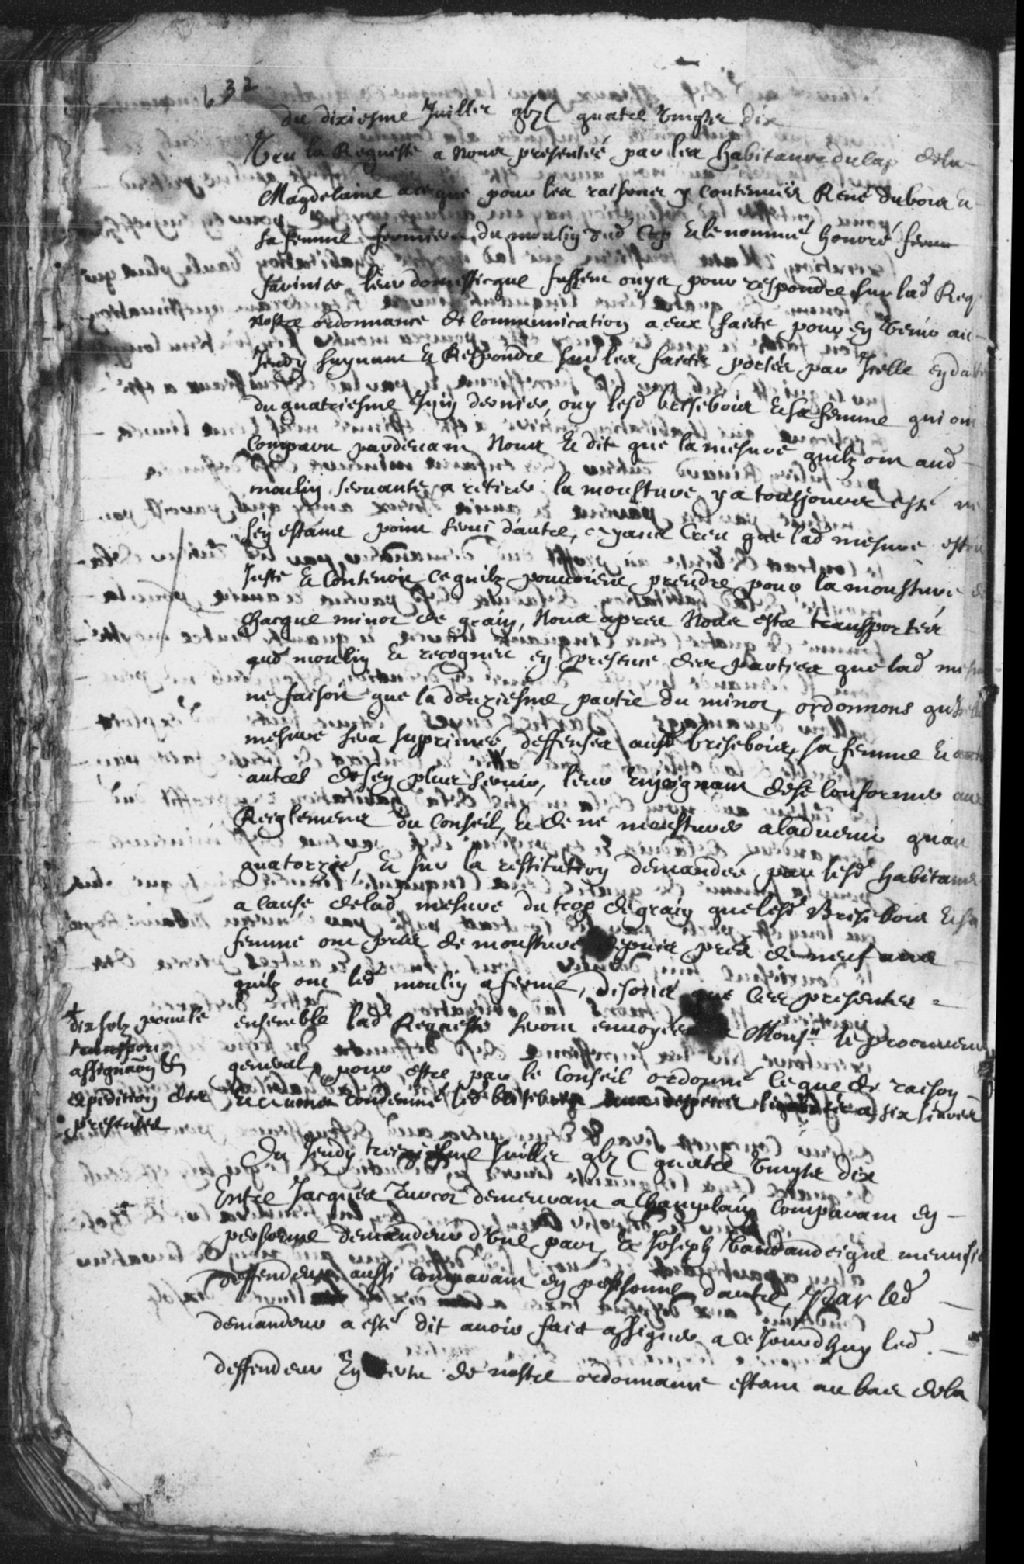 632
du dixiesme Juillet gbjC quatre vingtz dix
Veu la Requeste a Nous presentée par les habitans du Cap dela
Magdelaine a ce que pour les raisons y contenües René dubois &
sa femme fermiers du moulin dud Cap & le nommé honoré
leur domesticque fussent ouys pour respondre sur lad Req
nostre ordonnance de Communication a eux faite pour en venir au
Jeudy suyvant & Respondre sur les faits portés par Icelle en datte
du quatriesme Juin dernier, ouy lesd brisebois & sa femme qui ont
Comparu pardevant Nous & dit que la mesure quilz ont aud
moulin servante a retirer la mousture y a tousjours esté ne
sen estant point servi dautre, ayant Creu que lad mesure estoit
Juste & Contenoit ce quilz pouvoient prendre pour la mousture de
Chacque minot de grain, Nous apres Nous estre transportés
aud moulin & recogneu en presence des parties que lad mesure
ne faisoit que la douziesme partie du minot, ordonnons qu'icelle
mesure sera suprimée, deffenses ausd brisebois, sa femme &
autres de sen plus servir, leur Enjoignant de se Conformer aux
Reiglemens du Conseil, & de ne mousturer aladvenir quau
quatorzie, & sur la restitution demandée par lesd habitans
a Cause de lad mesure du trop de grain que lesd Brisebois & sa
femme ont pris de mousture depuis pres de neuf ans
quilz ont led moulin a ferme, disons que Ces presentes
ensemble lad Requeste seront envoyées a Monsr le procureur
general pour estre par le Conseil ordonné ce que de raison
condemné led brisebois aux depens a six livres
+
dix solz pour le
transport
assignaõn &
expedition des
presentes
Du Jeudy treziesme Juillet gbjC quatre vingts dix
Entre Jacques Turcot demeurant a Champlain Comparant en
personne demandeur d'une part, & Joseph vandandeigue menusier
deffendeur aussi Comparant en personne dautre, Par led
demandeur a esté dit avoir fait assigner a ce Jourdhuy led.
deffendeur En vertu de nostre ordonnance estant au bas dela